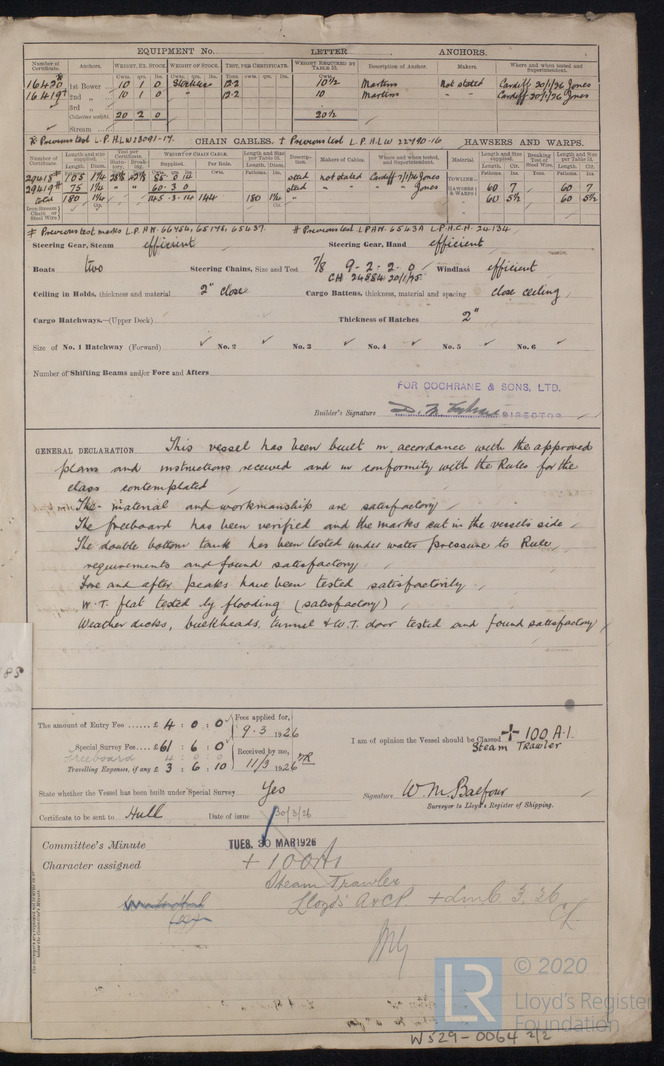 EQUIPMENT No. LETTER ANCHORS.
Number of Certificate. Anchors. WEIGHT, EX. STOCK. WEIGHT OF STOCK. TEST, PER CERTIFICATE. WEIGHT REQUIRED BY TABLE 31. Description of Anchor. Makers. Where and when tested and Superintendent.
16420 * 1st Bower 10 1 0 Stockless 12.2 10½ Martins Not stated Cardiff 20/1/26 Jones
16419 † 2nd " 10 1 0 " 12.2 10 Martins " " Cardiff 20/1/26 Jones
3rd "
Collective weight. 20 2 0 20½
Stream
* Previous test L.P.H.LW 23091-17. CHAIN CABLES. † Previous test L.P.H.LW 22790-16 HAWSERS AND WARPS.
Number of Certificate. Length and size supplied. Test per Certificate. WEIGHT OF CHAIN CABLE. Length and Size per Table 31. Description. Makers of Cables. Where and when tested, and Superintendent. Material Length and Size supplied. Breaking Test of Steel Wire. Length and Size per Table 31.
29418 105 1¼ 85 0 14 stud not stated Cardiff 7/1/26 Jones TOWLINE
29419 # 75 1¼ 60 3 0 sted " " " Jones HAWSERS & WARPS 60 7 60 7
total 180 1¼ 145 3 14 144 180 1¼ " 60 5½ 60 5½
Iron Stream Chain or Steel Wire
‡ Previous test marks L.P.H.N. 66454, 65176, 65437. # Previous test L.P.A.N. 6543A L.P.H.C.H. 24134
Steering Gear, Steam efficient Steering Gear, Hand efficient
Boats two Steering Chains, Size and Test 7/8 9-2-2-0 Windlass efficient
CH 24884 20/1/25
Ceiling in Holds, thickness and material 2" close Cargo Battens, thickness, material and spacing close ceiling
Cargo Hatchways.—(Upper Deck) Thickness of Hatches 2"
Size of No. 1 Hatchway (Forward) No. 2 No. 3 No. 4 No. 5 No. 6
Number of Shifting Beams and/or Fore and Afters
FOR COCHRANE & SONS, LTD.
Builder's Signature DIRECTOR
GENERAL DECLARATION This vessel has been built in accordance with the approved
plans and instructions received and in conformity with the Rules for the
class contemplated
The material and workmanship are satisfactory
The freeboard has been verified and the marks cut in the vessels side
The double bottom tank has been tested under water pressure to Rule
requirements and found satisfactory
Fore and after peaks have been tested satisfactorily
W.T. flat tested by flooding (satisfactory)
Weather decks, bulkheads, tunnel & W.T. door tested and found satisfactory
The amount of Entry Fee ...... £ 4 : 0 : 0 Fees applied for, 9.3 1926
Special Survey Fee.... £ 61 : 6 : 0
Freeboard 4 : 0 : 0 Received by me,
Travelling Expenses, if any £ 3 : 6 : 10 11/3 1926
I am of opinion the Vessel should be Classed + 100 A.1.
Steam Trawler
State whether the Vessel has been built under Special Survey Yes
Signature W. M. Balfour
Surveyor to Lloyd's Register of Shipping.
Certificate to be sent to Hull Date of issue 30/3/26
Committee's Minute TUES. 30 MAR 1926
Character assigned + 100A1
Steam Trawler
Lloyd's A & CP. + LMC 3.26
LR © 2020
Lloyd's Register
Foundation
W529-0064 2/2